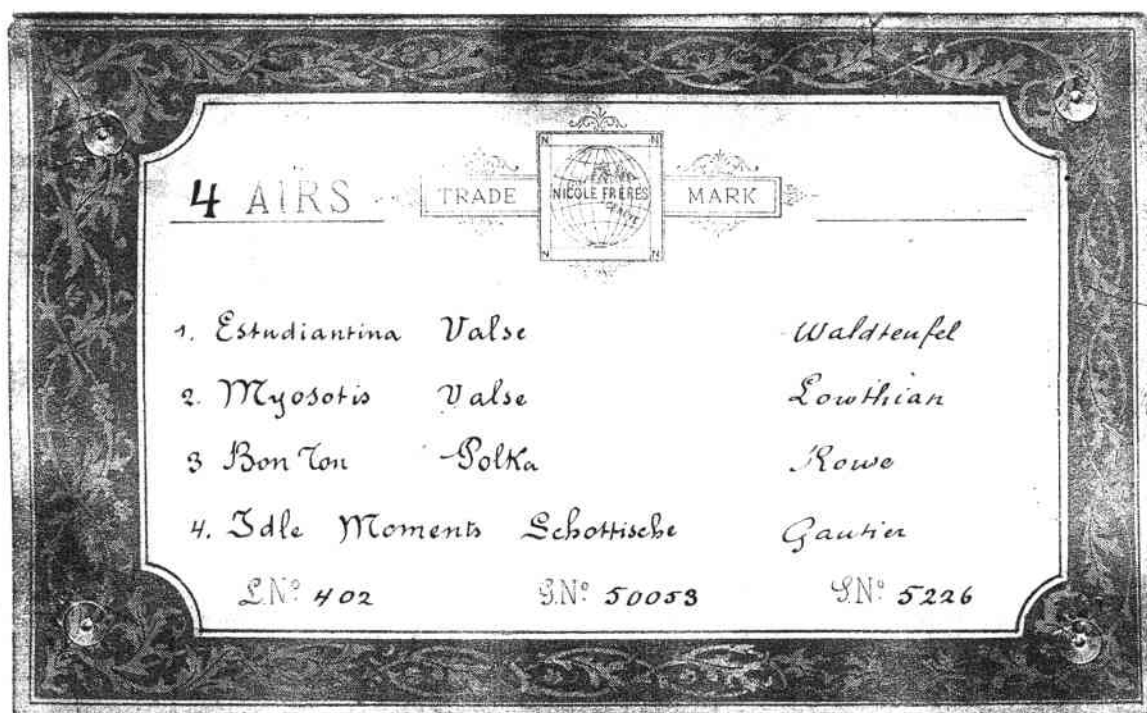 4 AIRS TRADE NICOLE FRÈRES MARK
GENÈVE
N N
N N
1. Estudiantina Valse Waldteufel
2. Myosotis Valse Lowthian
3 Bon Ton Polka Rowe
4. Idle Moments Schottische Gautier
L.Nº 402 G.Nº 50053 S.Nº 5226